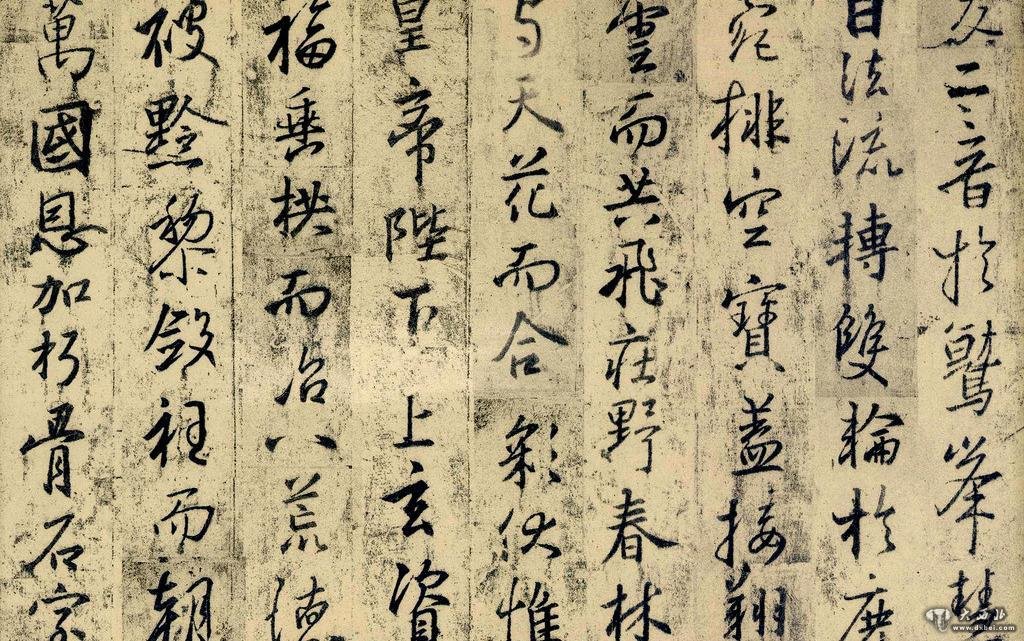 交二音於鷲峯慧
日法流轉雙輪於鹿
菀排空寶蓋接翔
雲而共飛莊野春林
與天花而合彩伏惟
皇帝陛下上玄資
福垂拱而治八荒德
被黔黎斂衽而朝
萬國恩加朽骨石室
大西北
www.dxbei.com